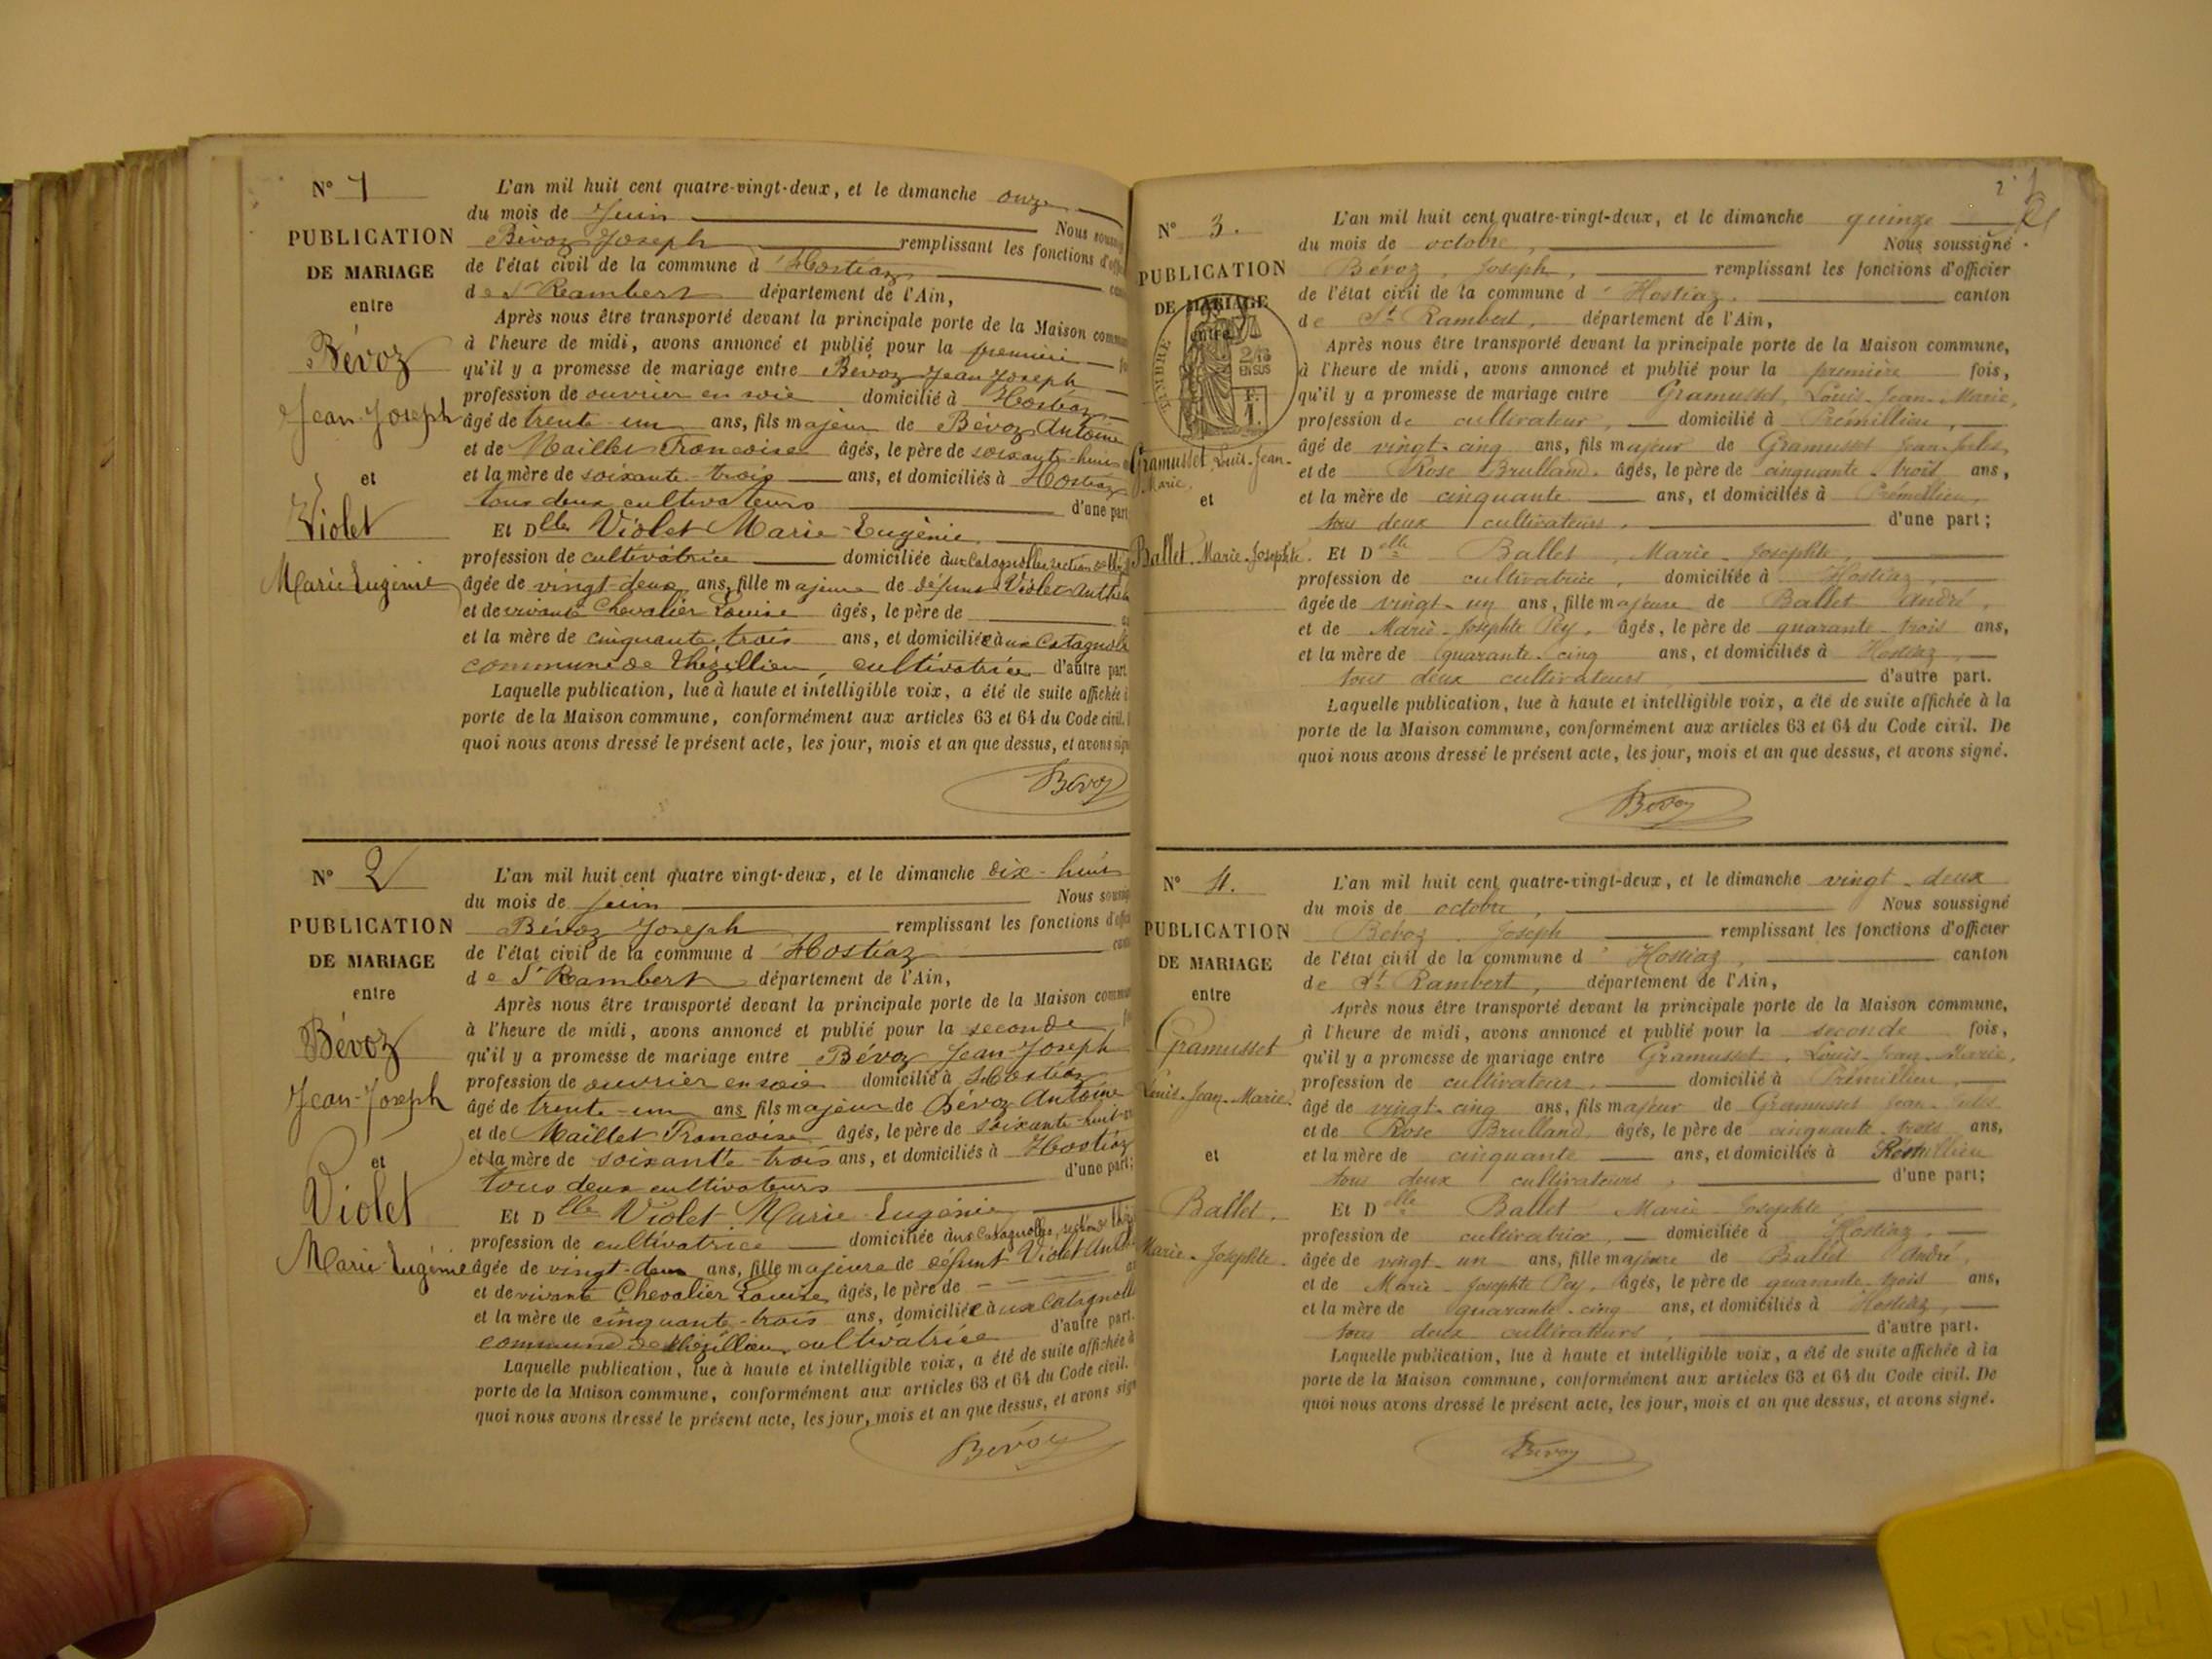 N° 1
PUBLICATION
DE MARIAGE
entre
Bévoz
Jean-Joseph
et
Violet
Marie Eugénie
L'an mil huit cent quatre-vingt-deux, et le dimanche onze
du mois de Juin Nous
Bévoz Joseph remplissant les fonctions
de l'état civil de la commune d'Hostiaz
de St Rambert département de l'Ain,
Après nous être transporté devant la principale porte de la Maison
à l'heure de midi, avons annoncé et publié pour la première
qu'il y a promesse de mariage entre Bévoz Jean Joseph
profession de ouvrier en soie domicilié à Hostiaz
âgé de trente-un ans, fils majeur de Bévoz Antoine
et de Maillet Francoise âgés, le père de soixante-huit
et la mère de soixante-trois ans, et domiciliés à Hostiaz
tous deux cultivateurs d'une part
Et Dlle Violet Marie-Eugénie
profession de cultivatrice domiciliée aux Catagnolles section
âgée de vingt-deux ans, fille majeure de défunt Violet
et de vivante Chevalier Louise âgés, le père de
et la mère de cinquante-trois ans, et domiciliée aux
commune de Thézillieu, cultivatrice d'autre part
Laquelle publication, lue à haute et intelligible voix, a été de suite affichée
porte de la Maison commune, conformément aux articles 63 et 64 du Code civil.
quoi nous avons dressé le présent acte, les jour, mois et an que dessus, et avons
Bévoz
N° 2
PUBLICATION
DE MARIAGE
entre
Bévoz
Jean-Joseph
et
Violet
Marie-Eugénie
L'an mil huit cent quatre vingt-deux, et le dimanche dix-huit
du mois de juin Nous
Bévoz Joseph remplissant les fonctions
de l'état civil de la commune d'Hostiaz
de St Rambert département de l'Ain,
Après nous être transporté devant la principale porte de la Maison
à l'heure de midi, avons annoncé et publié pour la seconde
qu'il y a promesse de mariage entre Bévoz Jean-Joseph
profession de ouvrier en soie domicilié à Hostiaz
âgé de trente-un ans fils majeur de Bévoz Antoine
et de Maillet Francoise âgés, le père de soixante-huit
et la mère de soixante-trois ans, et domiciliés à Hostiaz
tous deux cultivateurs d'une part;
Et Dlle Violet Marie-Eugénie
profession de cultivatrice domiciliée aux Catagnolles,
âgée de vingt-deux ans, fille majeure de défunt Violet
et de vivante Chevalier Louise âgés, le père de
et la mère de cinquante-trois ans, domiciliée aux
commune de Thézillieu, cultivatrice d'autre part.
Laquelle publication, lue à haute et intelligible voix, a été de suite affichée à
porte de la Maison commune, conformément aux articles 63 et 64 du Code civil.
quoi nous avons dressé le présent acte, les jour, mois et an que dessus, et avons
Bévoz
N° 3.
PUBLICATION
DE MARIAGE
entre
TIMBRE
2/10
EN SUS
Gramusset Louis-Jean-
Marie.
et
Ballet Marie-Josephte.
L'an mil huit cent quatre-vingt-deux, et le dimanche quinze
du mois de octobre, Nous soussigné
Bévoz, Joseph, remplissant les fonctions d'officier
de l'état civil de la commune d'Hostiaz. canton
de St Rambert, département de l'Ain,
Après nous être transporté devant la principale porte de la Maison commune,
à l'heure de midi, avons annoncé et publié pour la première fois,
qu'il y a promesse de mariage entre Gramusset, Louis-Jean-Marie,
profession de cultivateur, domicilié à Prémillieu,
âgé de vingt-cinq ans, fils majeur de Gramusset Jean-
et de Rose Brulland. âgés, le père de cinquante-trois ans,
et la mère de cinquante ans, et domiciliés à Prémillieu,
tous deux cultivateurs, d'une part;
Et Delle Ballet, Marie-Josephte,
profession de cultivatrice, domiciliée à Hostiaz,
âgée de vingt-un ans, fille majeure de Ballet André,
et de Marie-Josephte Pey, âgés, le père de quarante-trois ans,
et la mère de quarante-cinq ans, et domiciliés à Hostiaz,
tous deux cultivateurs d'autre part.
Laquelle publication, lue à haute et intelligible voix, a été de suite affichée à la
porte de la Maison commune, conformément aux articles 63 et 64 du Code civil. De
quoi nous avons dressé le présent acte, les jour, mois et an que dessus, et avons signé.
Bévoz
N° 4.
PUBLICATION
DE MARIAGE
entre
Gramusset
Louis-Jean-Marie.
et
Ballet.
Marie-Josephte.
L'an mil huit cent quatre-vingt-deux, et le dimanche vingt-deux
du mois de octobre, Nous soussigné
Bévoz Joseph remplissant les fonctions d'officier
de l'état civil de la commune d'Hostiaz, canton
de St Rambert, département de l'Ain,
Après nous être transporté devant la principale porte de la Maison commune,
à l'heure de midi, avons annoncé et publié pour la seconde fois,
qu'il y a promesse de mariage entre Gramusset, Louis-Jean-Marie,
profession de cultivateur, domicilié à Prémillieu,
âgé de vingt-cinq ans, fils majeur de Gramusset Jean-
et de Rose Brulland, âgés, le père de cinquante-trois ans,
et la mère de cinquante ans, et domiciliés à
tous deux cultivateurs, d'une part;
Et Delle Ballet Marie-Josephte,
profession de cultivatrice, domiciliée à Hostiaz,
âgée de vingt-un ans, fille majeure de Ballet André,
et de Marie-Josephte Pey, âgés, le père de quarante-trois ans,
et la mère de quarante-cinq ans, et domiciliés à Hostiaz,
tous deux cultivateurs, d'autre part.
Laquelle publication, lue à haute et intelligible voix, a été de suite affichée à la
porte de la Maison commune, conformément aux articles 63 et 64 du Code civil. De
quoi nous avons dressé le présent acte, les jour, mois et an que dessus, et avons signé.
Bévoz